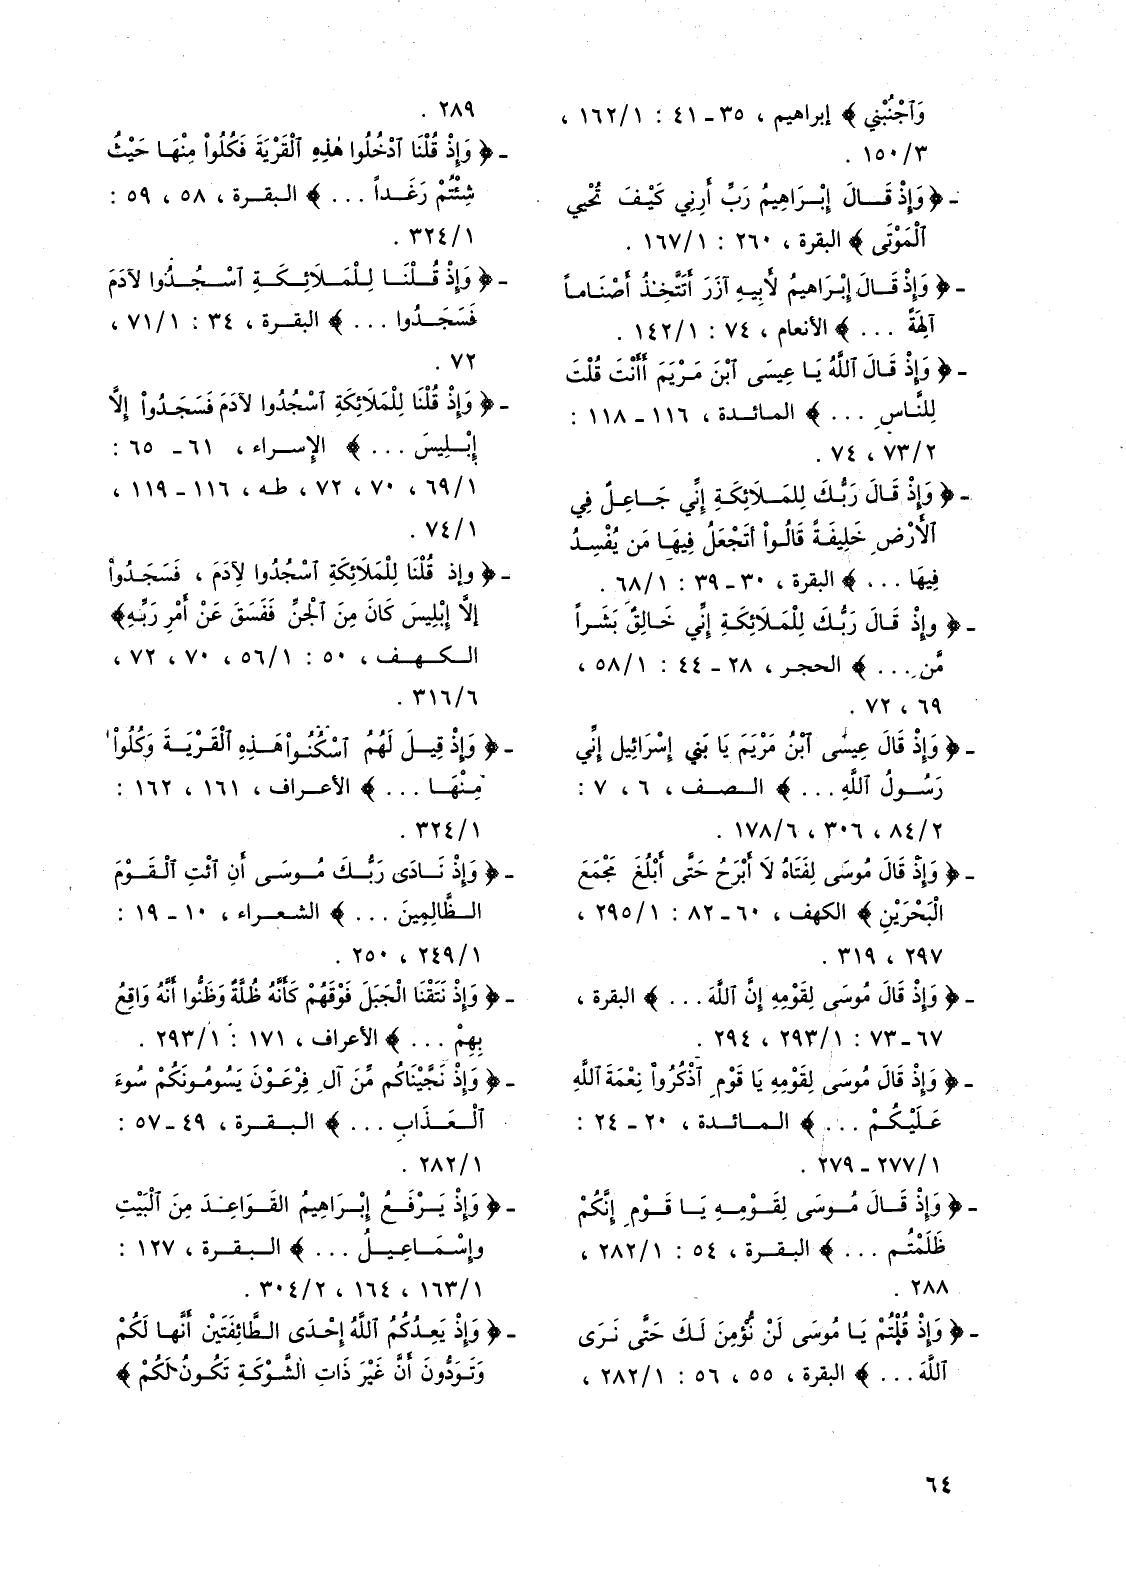 وَٱجْنُبْنِي ﴾ إبراهيم ، ٣٥ - ٤١ : ١٦٢/١ ،
١٥٠/٣ .
- ﴿ وَإِذْ قَالَ إِبْرَاهِيمُ رَبِّ أَرِنِي كَيْفَ تُحْيِي
ٱلْمَوْتَى ﴾ البقرة ، ٢٦٠ : ١٦٧/١ .
- ﴿ وَإِذْ قَالَ إِبْرَاهِيمُ لأَبِيهِ آزَرَ أَتَتَّخِذُ أَصْنَاماً
آلِهَةً ... ﴾ الأنعام ، ٧٤ : ١٤٢/١ .
- ﴿ وَإِذْ قَالَ ٱللَّهُ يَا عِيسَى ٱبْنَ مَرْيَمَ أَأَنْتَ قُلْتَ
لِلنَّاسِ ... ﴾ المائدة ، ١١٦ - ١١٨ :
٧٣/٢ ، ٧٤ .
- ﴿ وَإِذْ قَالَ رَبُّكَ لِلمَلَائِكَةِ إِنِّي جَاعِلٌ فِي
ٱلأَرْضِ خَلِيفَةً قَالُواْ أتَجْعَلُ فِيهَا مَن يُفْسِدُ
فِيهَا ... ﴾ البقرة ، ٣٠ - ٣٩ : ٦٨/١ .
- ﴿ وإِذْ قَالَ رَبُّكَ لِلْمَلَائِكَةِ إِنِّي خَالِقٌ بَشَراً
مَّن ... ﴾ الحجر ، ٢٨ - ٤٤ : ٥٨/١ ،
٦٩ ، ٧٢ .
- ﴿ وَإِذْ قَالَ عِيسَى ٱبْنُ مَرْيَمَ يَا بَنِي إِسْرَائِيل إِنِّي
رَسُولُ ٱللَّهِ ... ﴾ الصف ، ٦ ، ٧ :
٨٤/٢ ، ٣٠٦ ، ١٧٨/٦ .
- ﴿ وَإِذْ قَالَ مُوسَى لِفَتَاهُ لَا أَبْرَحُ حَتَّى أَبْلُغَ مَجْمَعَ
الْبَحْرَيْنِ ﴾ الكهف ، ٦٠ - ٨٢ : ٢٩٥/١ ،
٢٩٧ ، ٣١٩ .
- ﴿ وَإِذْ قَالَ مُوسَى لِقَوْمِهِ إِنَّ ٱللَّهَ ... ﴾ البقرة ،
٦٧ - ٧٣ : ٢٩٣/١ ، ٢٩٤ .
- ﴿ وَإِذْ قَالَ مُوسَى لِقَوْمِهِ يَا قَوْمِ ٱذْكُرُواْ نِعْمَةَ ٱللَّهِ
عَلَيْكُمْ ... ﴾ المائدة ، ٢٠ - ٢٤ :
٢٧٧/١ - ٢٧٩ .
- ﴿ وَإِذْ قَالَ مُوسَى لِقَوْمِهِ يَا قَوْمِ إِنَّكُمْ
ظَلَمْتُم ... ﴾ البقرة ، ٥٤ : ٢٨٢/١ ،
٢٨٨ .
- ﴿ وَإِذْ قُلْتُمْ يَا مُوسَى لَنْ نُّؤْمِنَ لَكَ حَتَّى نَرَى
ٱللَّهَ ... ﴾ البقرة ، ٥٥ ، ٥٦ : ٢٨٢/١ ،
٢٨٩ .
- ﴿ وَإِذْ قُلْنَا ٱدْخُلُوا هَذِهِ ٱلْقَرْيَةَ فَكُلُواْ مِنْهَا حَيْثُ
شِئْتُمْ رَغَداً ... ﴾ البقرة ، ٥٨ ، ٥٩ :
٣٢٤/١ .
- ﴿ وَإِذْ قُلْنَا لِلْمَلَائِكَةِ ٱسْجُدُوا لآدَمَ
فَسَجَدُوا ... ﴾ البقرة ، ٣٤ : ٧١/١ ،
٧٢ .
- ﴿ وَإِذْ قُلْنَا لِلْمَلَائِكَةِ ٱسْجُدُوا لآدَمَ فَسَجَدُواْ إِلاَّ
إِبْلِيسَ ... ﴾ الإسراء ، ٦١ - ٦٥ :
٦٩/١ ، ٧٠ ، ٧٢ ، طه ، ١١٦ - ١١٩ ،
٧٤/١ .
- ﴿ وإذ قُلْنَا لِلْمَلَائِكَةِ ٱسْجُدُوا لآدَمَ ، فَسَجَدُواْ
إِلاَّ إِبْلِيسَ كَانَ مِنَ ٱلْجِنِّ فَفَسَقَ عَنْ أَمْرِ رَبِّهِ﴾
الكهف ، ٥٠ : ٥٦/١ ، ٧٠ ، ٧٢ ،
٣١٦/٦ .
- ﴿ وَإِذْ قِيلَ لَهُمُ ٱسْكُنُواْ هَذِهِ ٱلْقَرْيَةَ وَكُلُواْ
مِنْهَا ... ﴾ الأعراف ، ١٦١ ، ١٦٢ :
٣٢٤/١ .
- ﴿ وَإِذْ نَادَى رَبُّكَ مُوسَى أَنِ ٱئْتِ ٱلْقَوْمَ
الظَّالِمِينَ ... ﴾ الشعراء ، ١٠ - ١٩ :
٢٤٩/١ ، ٢٥٠ .
- ﴿ وَإِذْ نَتَقْنَا الْجَبَلَ فَوْقَهُمْ كَأَنَّهُ ظُلَّةٌ وَظَنُّوا أَنَّهُ وَاقِعُ
بِهِمْ ... ﴾ الأعراف ، ١٧١ : ٢٩٣/١ .
- ﴿ وَإِذْ نَجَّيْنَاكُم مِّنَ آلِ فِرْعَوْنَ يَسُومُونَكُمْ سُوءَ
ٱلْعَذَابِ ... ﴾ البقرة ، ٤٩ - ٥٧ :
٢٨٢/١ .
- ﴿ وَإِذْ يَرْفَعُ إِبْرَاهِيمُ القَوَاعِدَ مِنَ ٱلْبَيْتِ
وإِسْمَاعِيلُ ... ﴾ البقرة ، ١٢٧ :
١٦٣/١ ، ١٦٤ ، ٣٠٤/٢ .
- ﴿ وَإِذْ يَعِدُكُمُ ٱللَّهُ إِحْدَى الطَّائِفَتَيْنِ أَنَّهَا لَكُمْ
وَتَوَدُّونَ أَنَّ غَيْرَ ذَاتِ الشَّوْكَةِ تَكُونُ لَكُمْ ﴾
٦٤